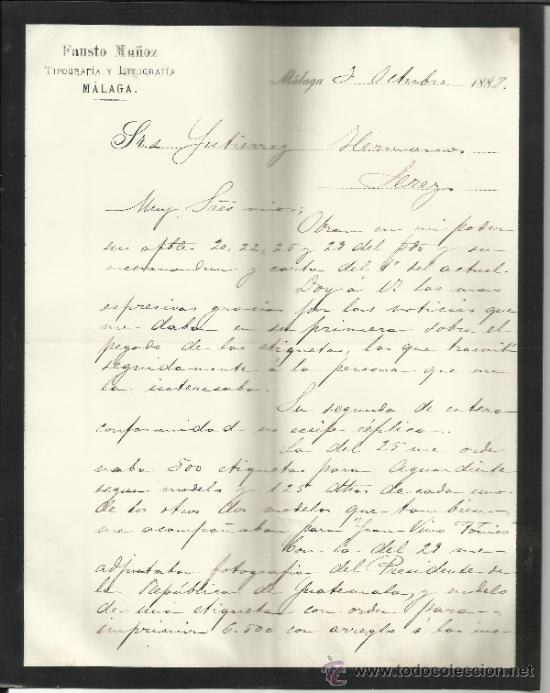 Fausto Muñoz
TIPOGRAFÍA Y LITOGRAFÍA
MÁLAGA.
Málaga 3 Octubre 1887.
Sres Gutierrez Hermanos,
Jerez
Muy Sres mios;
Obran en mi poder
sus aptbles 20, 22, 25 y 29 del pto y su
memorandum y carta del 1º del actual.
Doy á Vs las mas
espresivas gracias por las noticias que
me daban en su primera sobre el
pegado de las etiquetas, las que trasmití
seguidamente á la persona que me
la interesaba.
Su segunda de entera
conformidad no exije réplica.
La del 25 me orde
naba 500 etiquetas para Aguardiente
segun modelo y 125 de cada uno
de los otros dos modelos que tambien
me acompañaban para "Gran Vino Tónico"
Con la del 29 me
adjuntaban fotografia del Presidente de
la República de Guatemala, y modelo
de una etiqueta con orden para
imprimir 6.500 con arreglo á las ins-
todocoleccion
www.todocoleccion.net